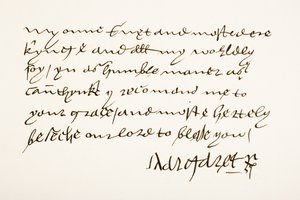 my oune suet and most dere
kynge and all my worldly
joy yn as humble maner as
can thynke I recomand me to
your grace and most hertely
beseche our lord to blesse you
Margaret R